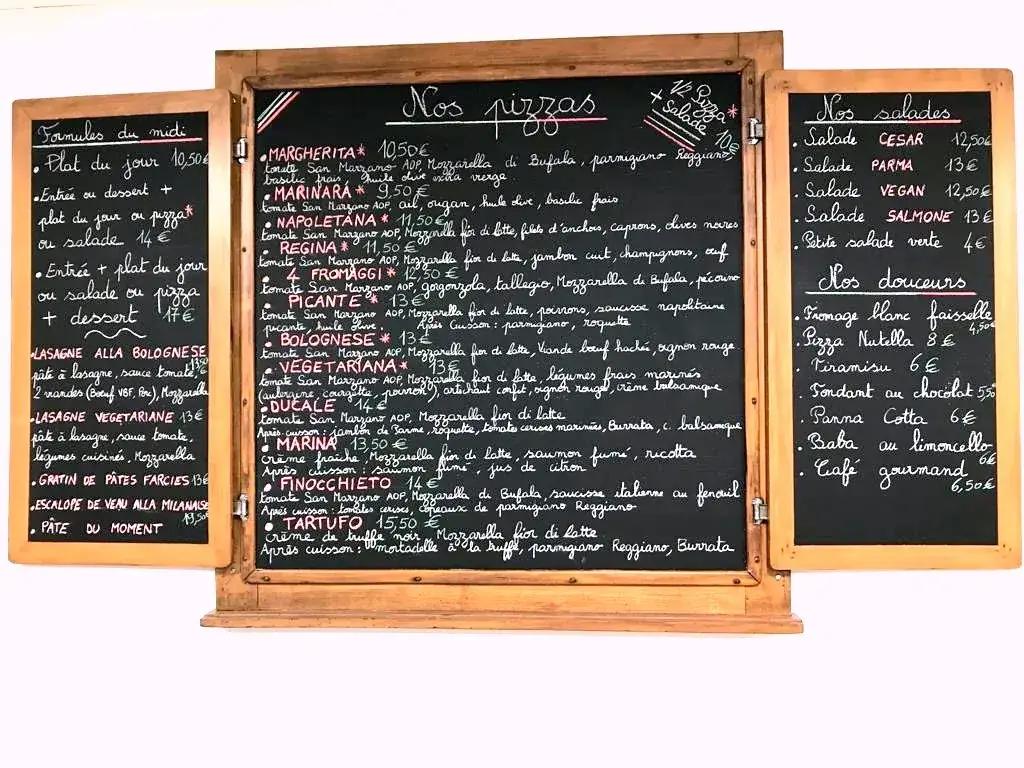 Formules du midi
• Plat du jour 10,50€
• Entrée ou dessert +
plat du jour ou pizza*
ou salade 14 €
• Entrée + plat du jour
ou salade ou pizza
+ dessert 17 €
• LASAGNE ALLA BOLOGNESE
pâte à lasagne, sauce tomate,
2 viandes (Boeuf VBF, Porc), Mozzarella
• LASAGNE VEGETARIANE 13€
pâte à lasagne, sauce tomate,
légumes cuisinés, Mozzarella
• GRATIN DE PÂTES FARCIES 13€
• ESCALOPE DE VEAU ALLA MILANAISE
• PÂTE DU MOMENT
Nos pizzas
1/2 Pizza*
+ Salade 10€
• MARGHERITA* 10,50€
tomate San Marzano AOP, Mozzarella di Bufala, parmigiano Reggiano,
basilic frais, huile olive extra vierge
• MARINARA* 9,50 €
tomate San Marzano AOP, ail, origan, huile olive, basilic frais
• NAPOLETANA* 11,50 €
tomate San Marzano AOP, Mozzarella fior di latte, filets d'anchois, caprons, olives noires
• REGINA* 11,50 €
tomate San Marzano AOP, Mozzarella fior di latte, jambon cuit, champignons, œuf
• 4 FROMAGGI* 12,50 €
tomate San Marzano AOP, gorgonzola, tallegio, Mozzarella di Bufala, pécorino
• PICANTE* 13€
tomate San Marzano AOP, Mozzarella fior di latte, poivrons, saucisse napolitaine
picante, huile olive. Après Cuisson: parmigiano, roquette
• BOLOGNESE* 13 €
tomate San Marzano AOP, Mozzarella fior di latte, Viande boeuf haché, oignon rouge
• VEGETARIANA* 13€
tomate San Marzano AOP, Mozzarella fior di latte, légumes frais marinés
(aubergine, courgette, poivron), artichaut confit, oignon rouge, crème balsamique
• DUCALE 14 €
tomate San Marzano AOP, Mozzarella fior di latte
Après cuisson: jambon de Parme, roquette, tomates cerises marinées, Burrata, c. balsamique
• MARINA 13,50 €
crème fraîche, Mozzarella fior di latte, saumon fumé, ricotta
Après cuisson: saumon fumé, jus de citron
• FINOCCHIETO 14€
tomate San Marzano AOP, Mozzarella di Bufala, saucisse italienne au fenouil
Après cuisson: tomates cerises, copeaux de parmigiano Reggiano
• TARTUFO 15,50 €
crème de truffe noir, Mozzarella fior di latte
Après cuisson: mortadelle à la truffe, parmigiano Reggiano, Burrata
Nos salades
• Salade CESAR 12,50€
• Salade PARMA 13€
• Salade VEGAN 12,50€
• Salade SALMONE 13€
• Petite salade verte 4€
Nos douceurs
• Fromage blanc faisselle
4,50€
• Pizza Nutella 8€
• Tiramisu 6€
• Fondant au chocolat 5,50
• Panna Cotta 6€
• Baba au limoncello
6€
• Café gourmand
6,50€